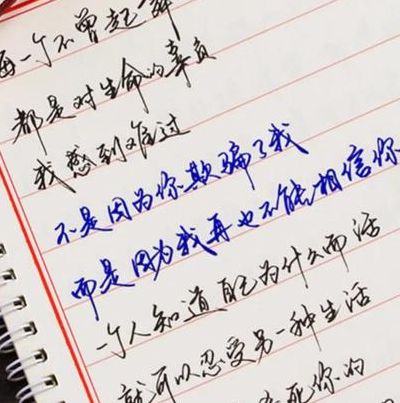 每一个不曾起舞
都是对生命的辜负
我感到难过
不是因为你欺骗了我
而是因为我再也不能相信你
一个人知道自己为什么而活
就可以忍受另一种生活
死你的